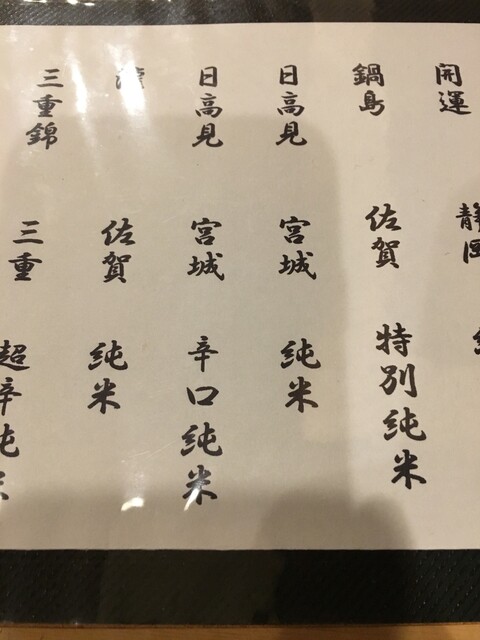 開運 静岡
鍋島 佐賀 特別純米
日高見 宮城 純米
日高見 宮城 辛口純米
佐賀 純米
三重錦 三重 超辛純米